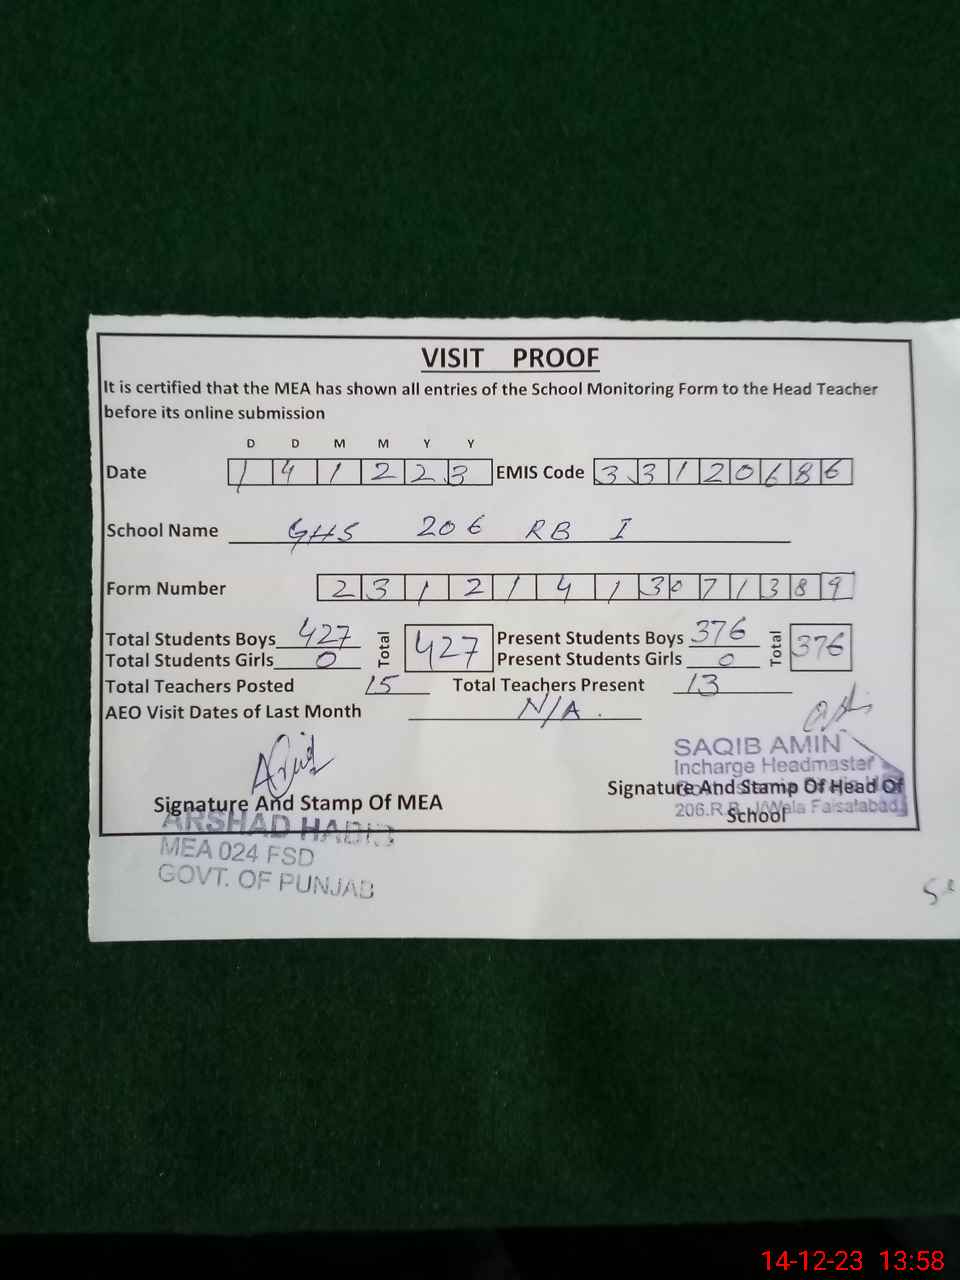 VISIT PROOF
It is certified that the MEA has shown all entries of the School Monitoring Form to the Head Teacher
before its online submission
D D M M Y Y
Date 1 4 1 2 2 3 EMIS Code 3 3 1 2 0 6 8 6
School Name GHS 206 RB I
Form Number 2 3 1 2 1 4 1 3 0 7 1 3 8 9
Total Students Boys 427 Total 427 Present Students Boys 376 Total 376
Total Students Girls 0 Present Students Girls 0
Total Teachers Posted 15 Total Teachers Present 13
AEO Visit Dates of Last Month N/A.
SAQIB AMIN
Incharge Headmaster
Signature And Stamp Of MEA Signature And Stamp Of Head Of
School
206.R.B. J/Wala Faisalabad
ARSHAD HABIB
MEA 024 FSD
GOVT. OF PUNJAB
14-12-23 13:58